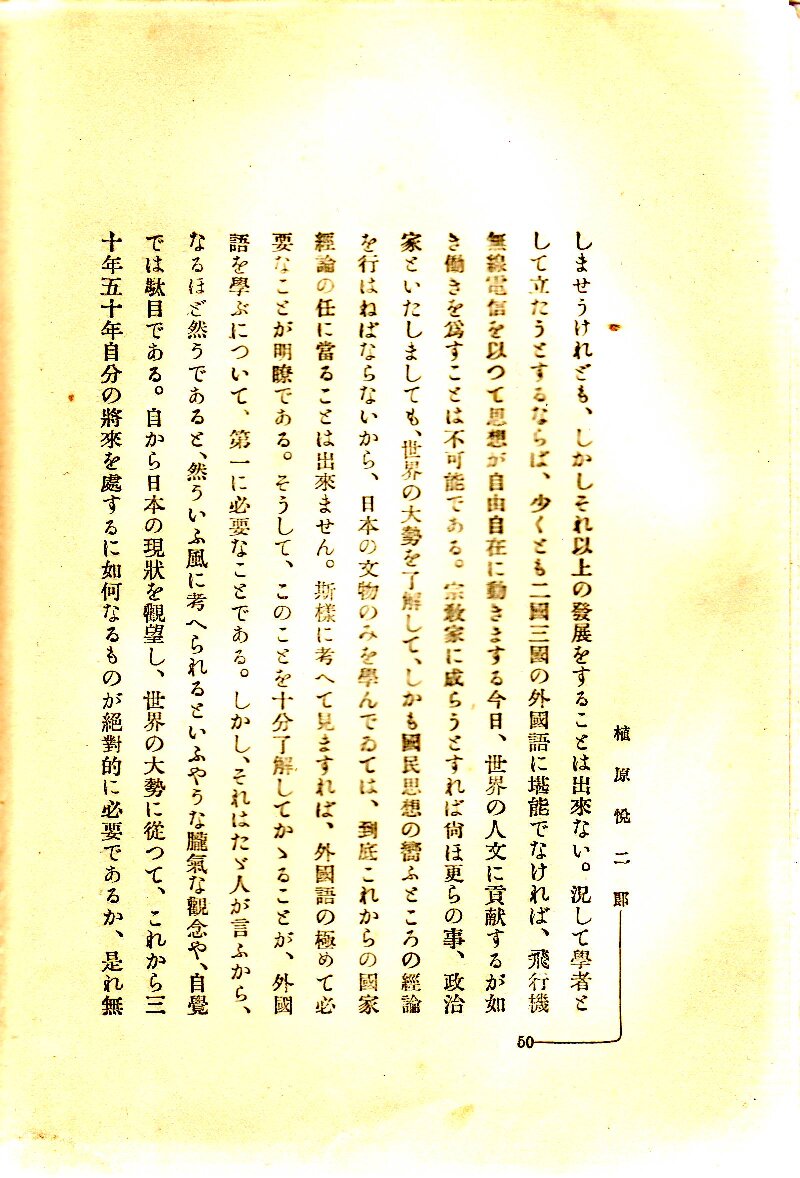 植原悅二郎
50
しませうけれども、しかしそれ以上の發展をすることは出來ない。況して學者と
して立たうとするならば、少くとも二國三國の外國語に堪能でなければ、飛行機
無線電信を以つて思想が自由自在に動きまする今日、世界の人文に貢献するが如
き働きを爲すことは不可能である。宗敎家に成らうとすれば尙ほ更らの事、政治
家といたしましても、世界の大勢を了解して、しかも國民思想の嚮ふところの經論
を行はねばならないから、日本の文物のみを學んでゐては、到底これからの國家
經論の任に當ることは出來ません。斯樣に考へて見ますれば、外國語の極めて必
要なことが明瞭である。そうして、このことを十分了解してかゝることが、外國
語を學ぶについて、第一に必要なことである。しかし、それはたゞ人が言ふから、
なるほど然うであると、然ういふ風に考へられるといふやうな朧氣な觀念や、自覺
では駄目である。自から日本の現狀を觀望し、世界の大勢に從つて、これから三
十年五十年自分の將來を處するに如何なるものが絕對的に必要であるか、是れ無